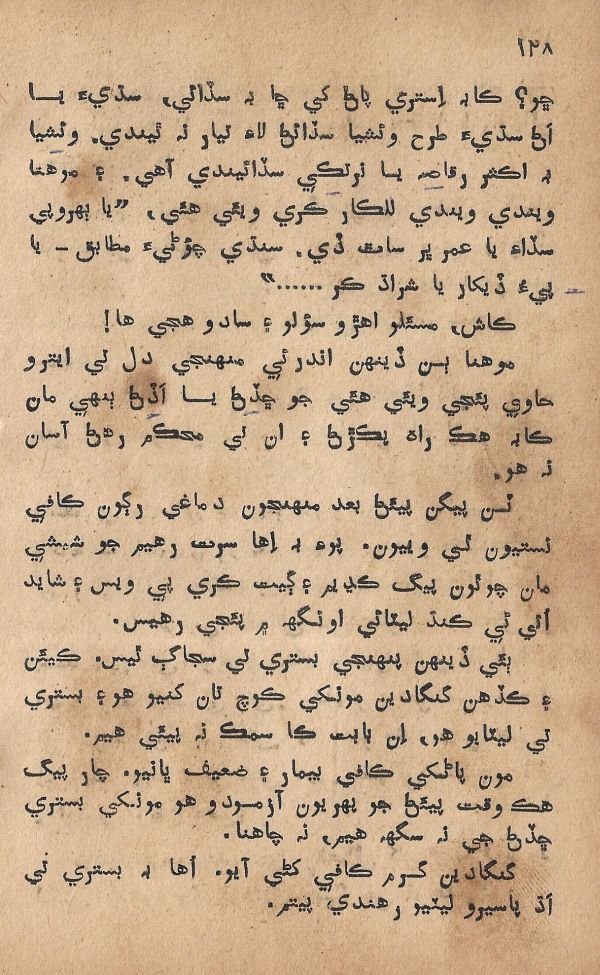 ۱۴۸
ڇو؟ ڪا بہ اِستري پاڻ کي ڇا بہ سڏائي، سڌيءَ يا
اڻ سڌيءَ طرح ويشيا سڏائڻ لاءِ تيار نہ ٿيندي. ويشيا
بہ اڪثر رقاصہ يا نرتڪي سڏائيندي آهي. ۽ موهنا
ويندي ويندي للڪار ڪري ويئي هئي، ”يا ٻهروپي
سڏاءِ يا عمر ڀر ساٿ ڏي. سنڌي چوڻيءَ مطابق – يا
پيءُ ڏيکار يا شراڌ ڪر......“
ڪاش، مسئلو اهڙو سؤلو ۽ سادو هجي ها!
موهنا ٻن ڏينهن اندر ئي منهنجي دل تي ايترو
حاوي ٿي ويئي هئي جو ڇڏڻ يا اڏڻ ٻنهي مان
ڪا بہ هڪ راهہ پڪڙڻ ۽ ان تي محڪم رهڻ آسان
نہ هو.
ٽن پيگن پيئڻ بعد منهنجون دماغي رڳون ڪافي
سستيون ٿي ويون. پوءِ بہ اِها سرت رهيم جو شيشي
مان چوٿون پيگ ڪڍيم ۽ ڳيت ڪري پي ويس ۽ شايد
اُتي ئي ڪنڌ ليٽائي اونگهہ ۾ پئجي رهيس.
ٻئي ڏينهن پنهنجي بستري تي سجاڳ ٿيس. ڪيئن
۽ ڪڏهن گنگادين مونکي ڪوچ تان کنيو هو ۽ بستري
تي ليٽايو هو، اِن بابت ڪا سمڪ نہ پيئي هيم.
مون پاڻکي ڪافي بيمار ۽ ضعيف ڀانيو. چار پيگ
هڪ وقت پيئڻ جو پهريون آزمودو هو مونکي بستري
ڇڏڻ جي نہ سگهہ هيم، نہ چاهنا.
گنگادين گرم ڪافي کڻي آيو. اُها بہ بستري تي
اڌ پاسيرو ليٽيو رهندي پيتم.